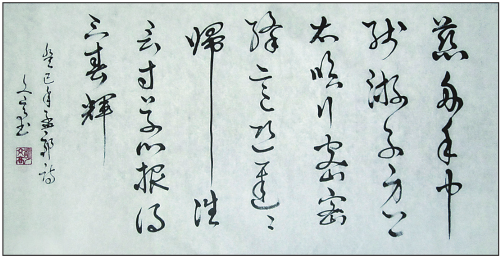 慈母手中
线游子身上
衣临行密密
缝意恐遲〻
歸谁
言寸草心报得
三春輝
癸巳年孟郊诗